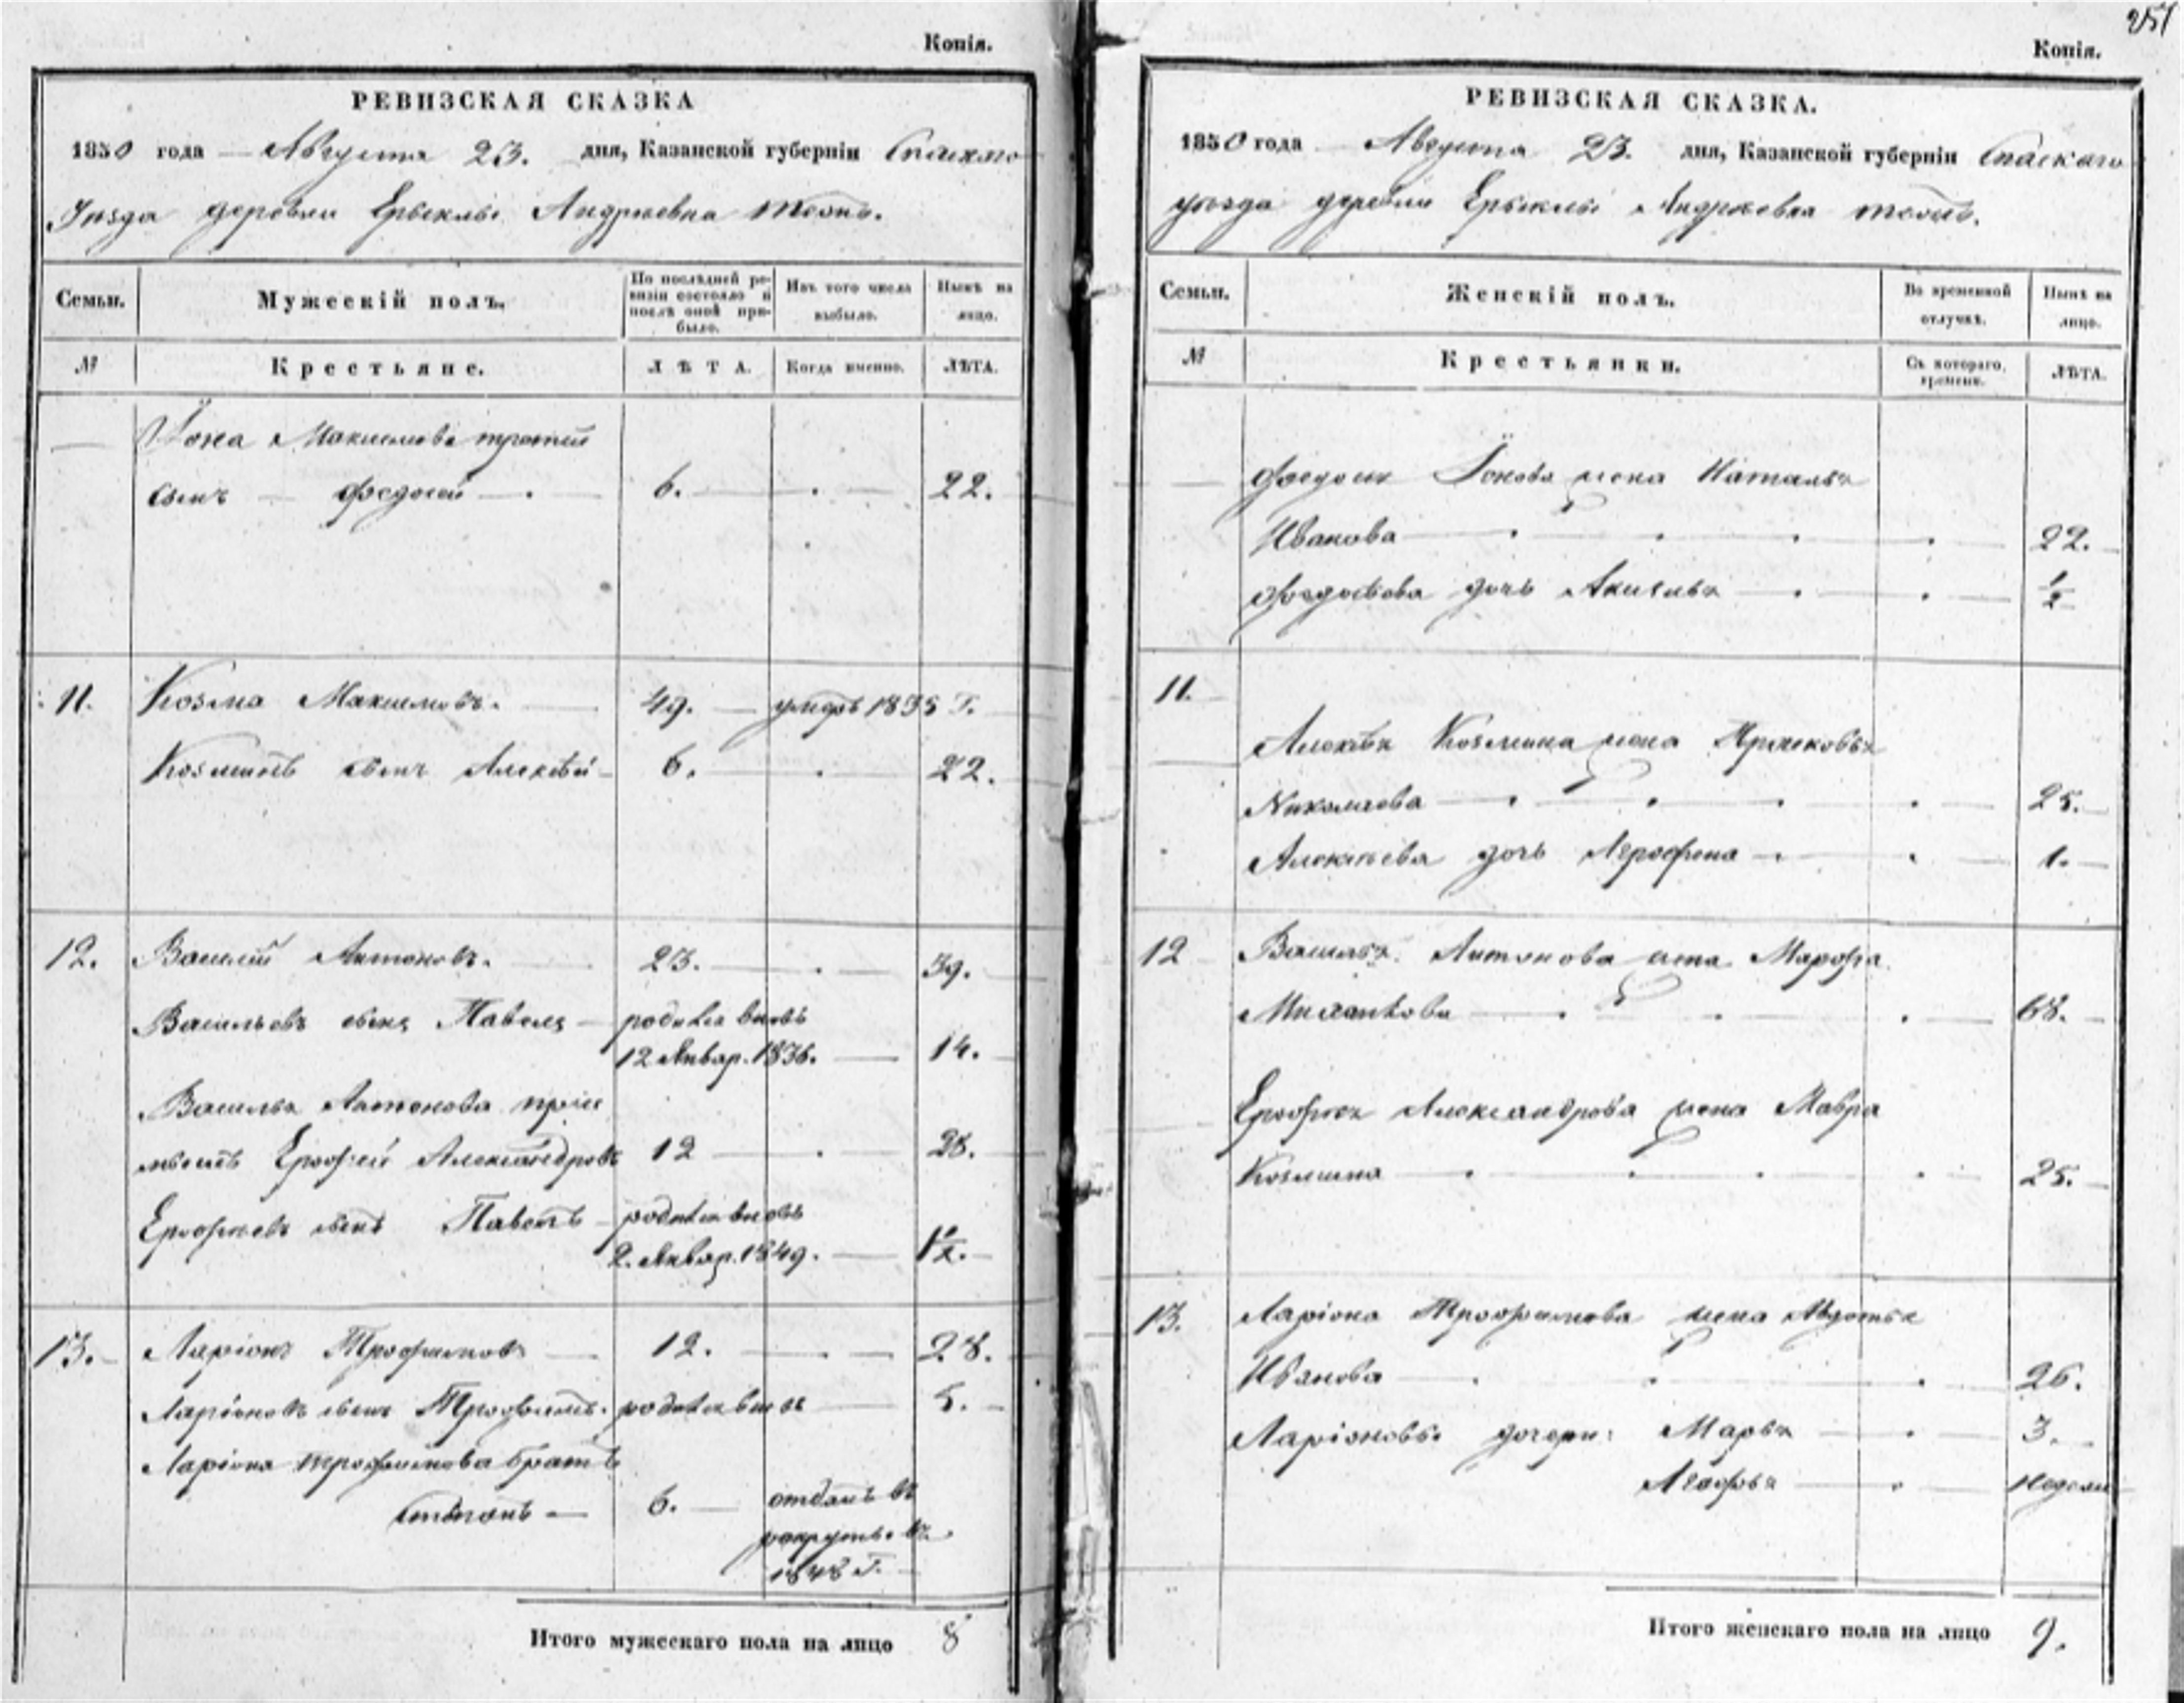 257
Копія.
РЕВИЗСКАЯ СКАЗКА
1850 года Августа 23. дня, Казанской губерніи Спаскаго
Уѣзда деревни Ерыклы Андреевка тожъ.
Семьи.
Мужескій полъ.
По послѣдней ре-
визіи состояло и
послѣ оной при-
было.
Изъ того числа
выбыло.
Нынѣ на
лицо.
№
Крестьяне.
ЛѢТА.
Когда именно.
ЛѢТА.
Іона Максимова третій
сынъ Федосей 6. 22.
11. Козма Максимовъ. 49. умеръ 1835 г.
Козминъ сынъ Алексѣй 6. 22.
12. Василій Антоновъ. 23. 39.
Васильевъ сынъ Павелъ родился вновь
12 Январ. 1836. 14.
Василья Антонова пріем
Ерофей Александровъ 12 28.
Ерофеевъ сынъ Павелъ родился вновь
2. Январ. 1849. 1½.
13. Ларіонъ Трофимовъ 12. 28.
Ларіоновъ сынъ Трофимъ. родился вновь 5.
Ларіона Трофимова братъ
Степанъ 6. отданъ въ
рекруты въ
1848 г.
Итого мужескаго пола на лицо 8
Копія.
РЕВИЗСКАЯ СКАЗКА.
1850 года Августа 23. дня, Казанской губерніи Спаскаго
уѣзда деревни Ерыклы Андреевка тожъ.
Семьи.
Женскій полъ.
Во временной
отлучкѣ.
Нынѣ на
лицо.
№
Крестьянки.
Съ котораго
времени.
ЛѢТА.
Федосея Іонова жена Наталья
Иванова 22.
Федосѣева дочь Акилина ½
11.
Алексѣя Козмина жена
Николаева 25.
Алексѣева дочь Аграфена 1.
12 Василья Антонова жена Марфа
68.
Ерофея Александрова жена Мавра
Козмина 25.
13. Ларіона Трофимова жена Авдотья
Иванова 26.
Ларіоновы дочери: Марья 3.
Агафья недели
Итого женскаго пола на лицо 9.